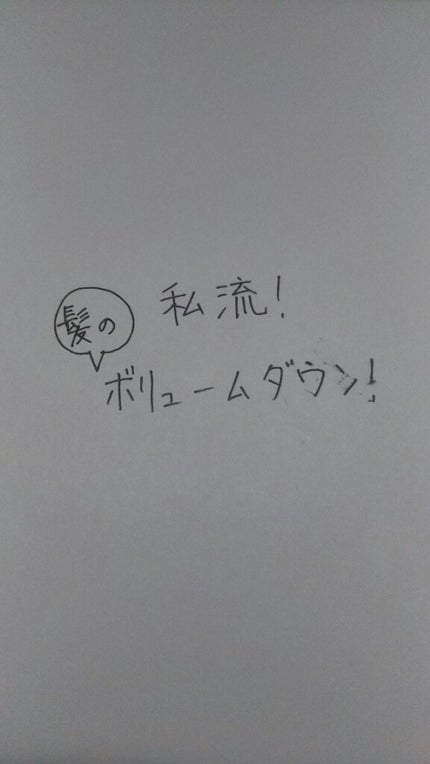 私流!
髪の
ボリュームダウン!